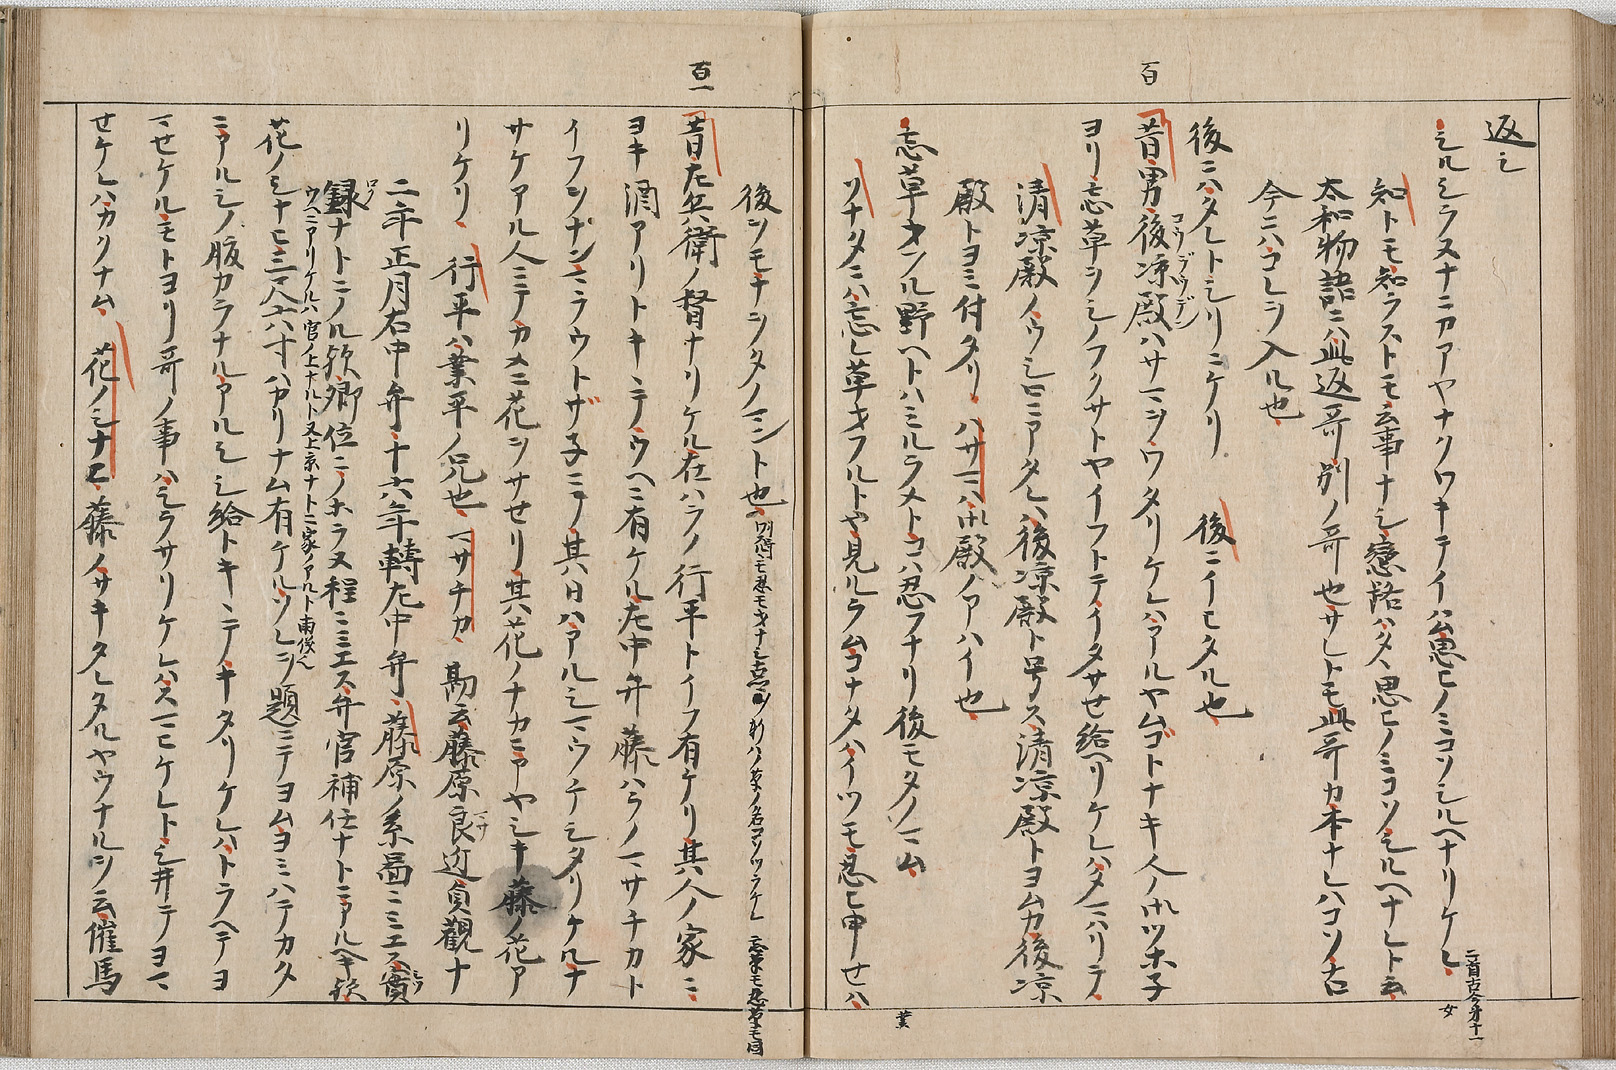 百
返シ
シルシラヌナニカアヤナクワキテイハム思ヒノミコソシルヘナリケレ
二首古今第十一
女
知トモ知ラストモ云事ナシ戀路ハタヽ思ヒノミコソシルヘナレト云
太和物語ニハ此返哥別ノ哥也サレトモ此哥カ本ナレハコソ古
今ニハコレヲ入ル也
後ニハタレトシリニケリ 後ニイモタル也
昔男後凉殿ハサマヲワタリケレハアルヤムゴトナキ人ノ御ツホ子
コウデウデン
ヨリ忘草ヲシノフクサトヤイフトテイタサせ給ヘリケレハタマハリテ
清凉殿ノウシロニアタレハ後凉殿ト号ス清凉殿トヨムカ後凉
殿トヨミ付タリ ハサマハ御殿ノアハイ也
忘草オフル野ヘトハミルラメトコハ忍フナリ後モタノマム
業
ソナタニハ忘レ草オフルトヤ見ルラムコナタハイツモ忍ヒ申せハ
後ヲモナヲタノマント也
忘草モ忍草モ同
百一
昔左兵衛ノ督ナリケル在ハラノ行平トイフ有ケリ其人ノ家ニ
ヨキ酒アリトキヽテウヘニ有ケル左中弁藤ハラノマサチカト
イフヲナンマラウトザ子ニテ其日ハアルシマウケシタリケルナ
サケアル人ニテカメニ花ヲサせリ其花ノナカニアヤシキ藤ノ花ア
リケリ 行平ハ業平ノ兄也 マサチカ 勘云藤原良近貞觀十
マサ
二年正月右中弁十六年轉左中弁 藤原ノ系圖ニミエス實
録ナトニノル欤卿位ニノホラヌ程ニミエス弁官補任ナトニアルヘキ欤
ロク
ウヘニアリケルハ官ノ上ナルト又上京ナトニ家ノアルト両儀也
花ノシナヒ三尺六寸ハカリナム有ケルソレヲ題ニテヨムヨミハテカタ
ニアルシノ腹カラナルアルシシ給トキヽテキタリケレハトラヘテヨ
マせケルモトヨリ哥ノ事ハシラサリケレハスマヒケレトシ井テヨマ
せケレハカクナム 花ノシナヒ 藤ノサキタレタルヤウナルヲ云催馬